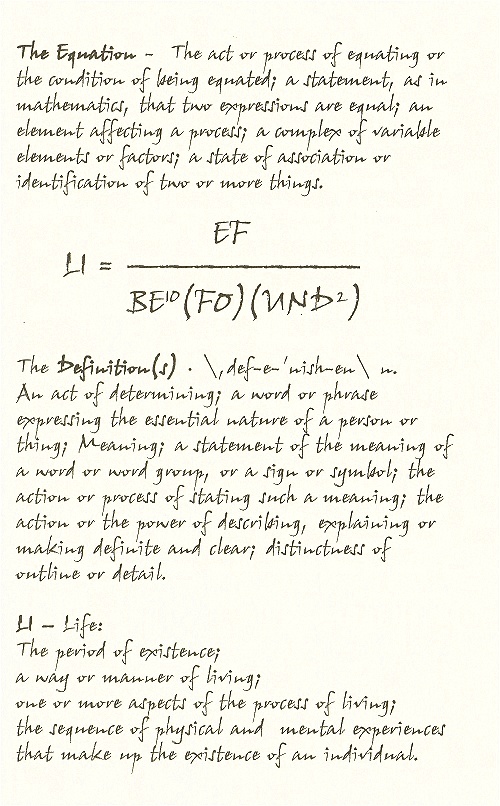 The Equation - The act or process of equating or
the condition of being equated; a statement, as in
mathematics, that two expressions are equal; an
element affecting a process; a complex of variable
elements or factors; a state of association or
identification of two or more things.
EF
LI =
BE¹⁰(FO)(UND²)
The Definition(s) · \,def-e-'nish-en\ n.
An act of determining; a word or phrase
expressing the essential nature of a person or
thing; Meaning; a statement of the meaning of
a word or word group, or a sign or symbol; the
action or process of stating such a meaning; the
action or the power of describing, explaining or
making definite and clear; distinctness of
outline or detail.
LI - Life:
The period of existence;
a way or manner of living;
one or more aspects of the process of living;
the sequence of physical and mental experiences
that make up the existence of an individual.